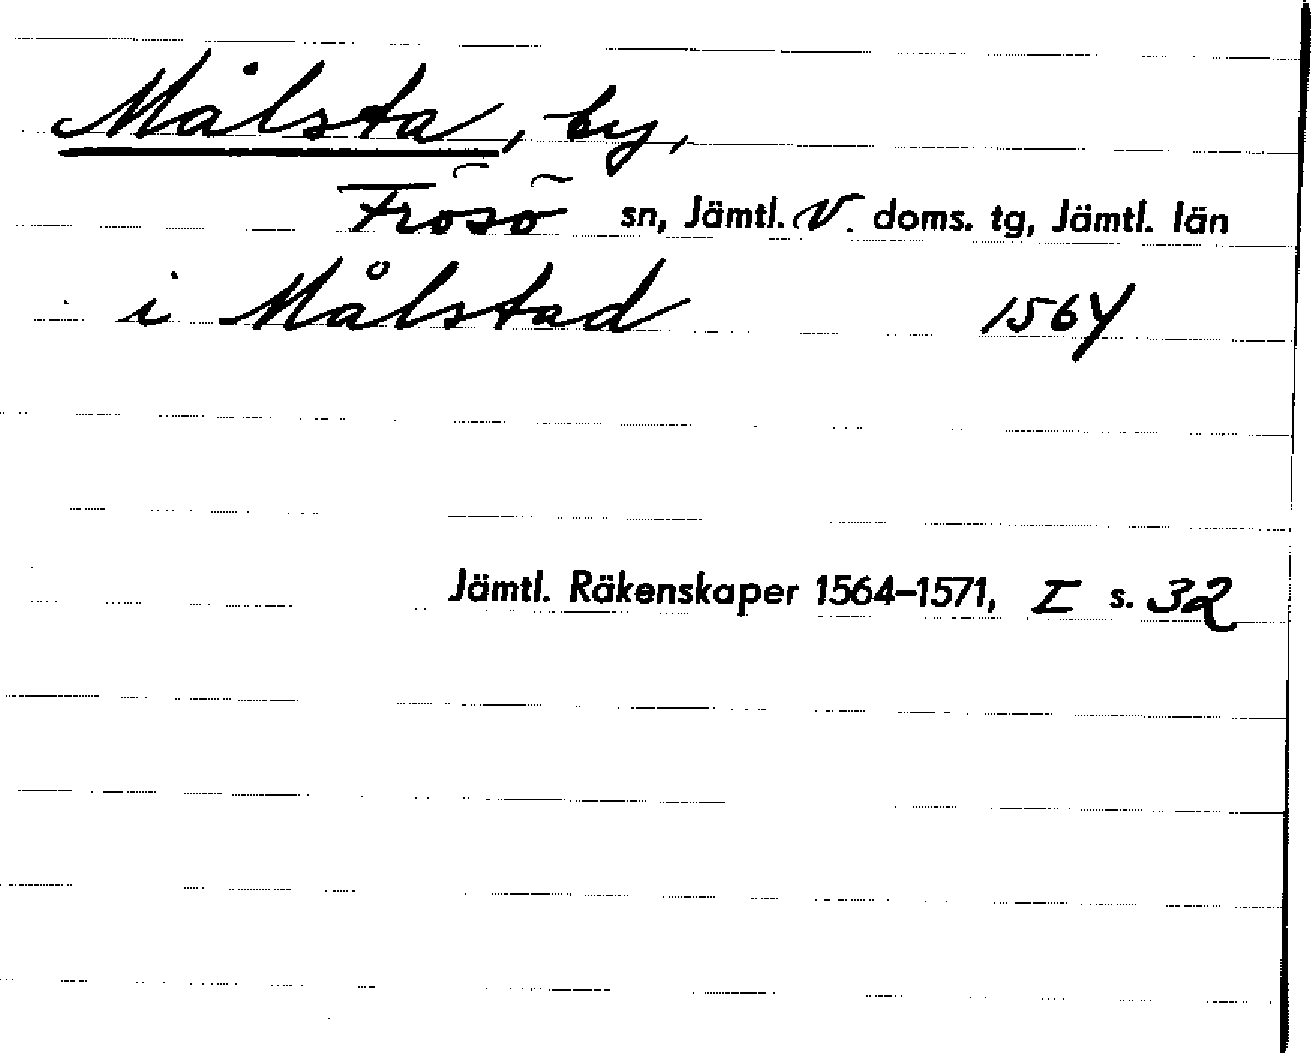 Målsta, by,
Frösö sn, Jämtl. V. doms. tg, Jämtl. län
i Målstad 1564
Jämtl. Räkenskaper 1564–1571, I s. 32